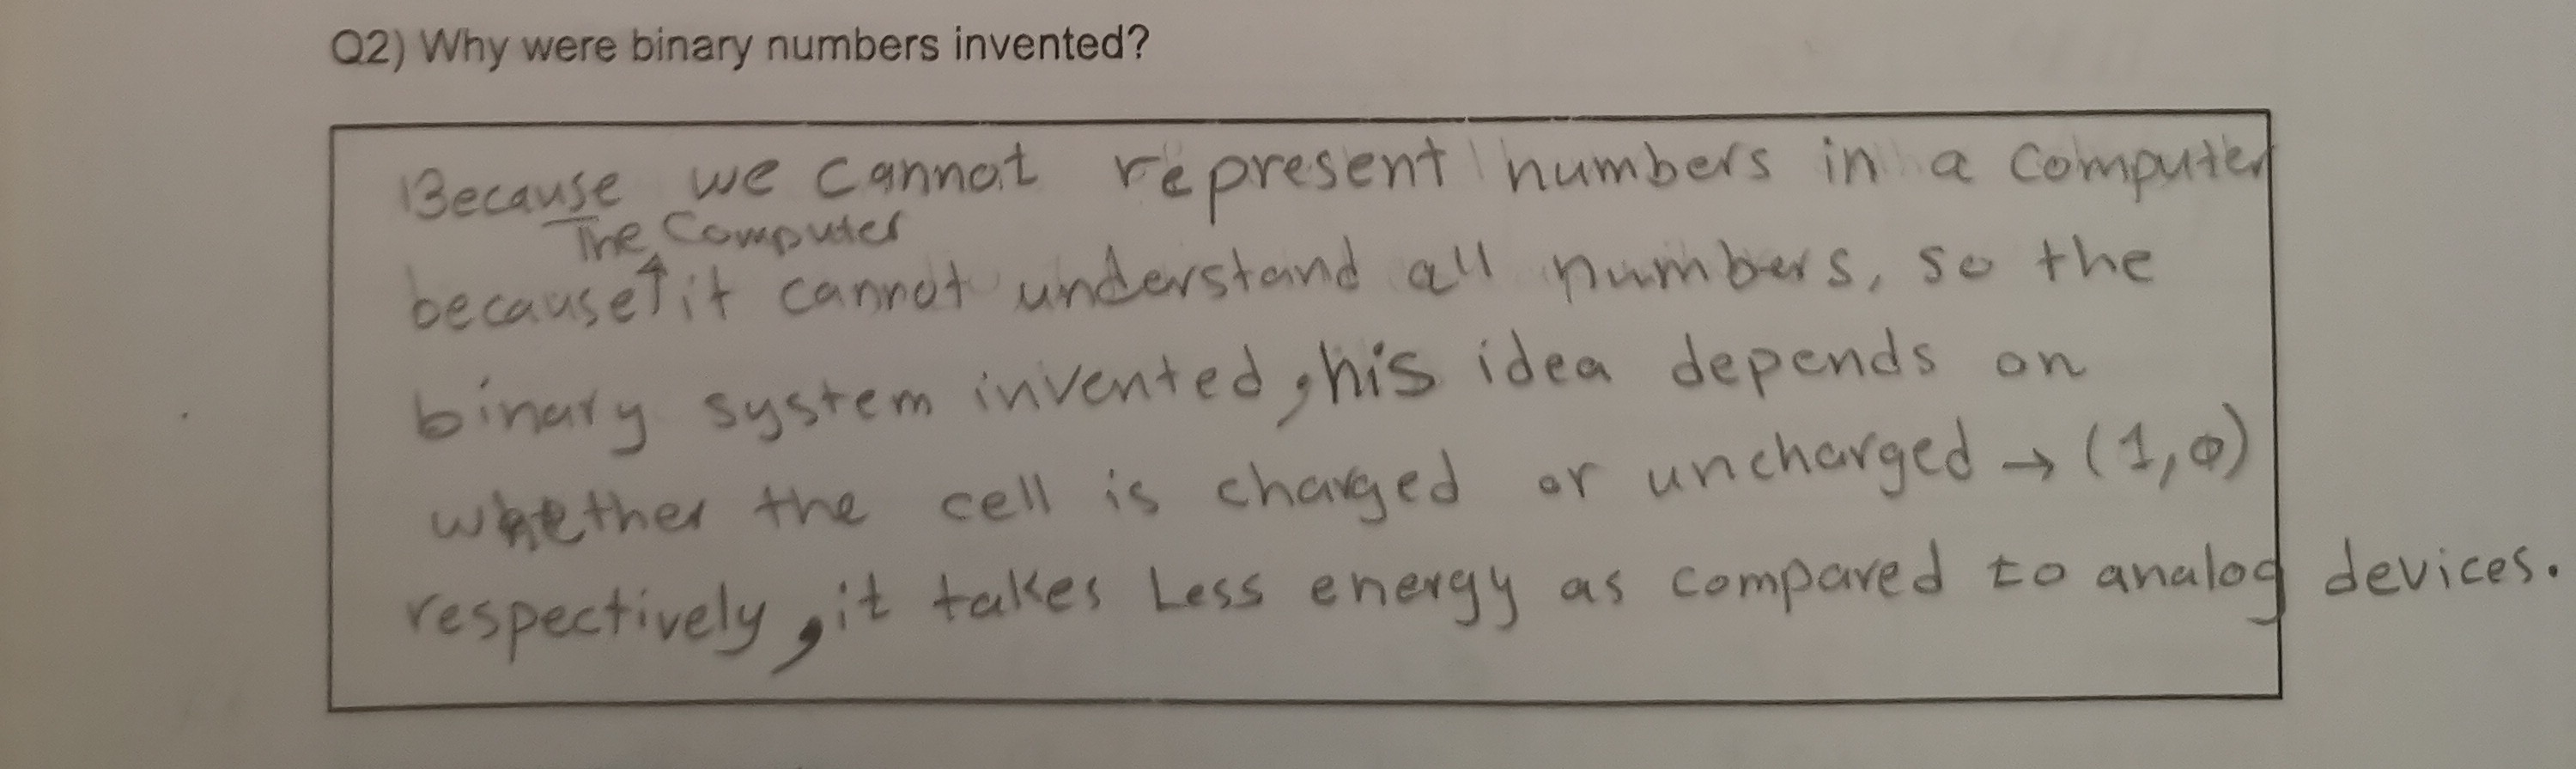 Q2) Why were binary numbers invented?
Because we cannot represent numbers in a computer
The Computer
because it cannot understand all numbers, so the
binary system invented, his idea depends on
whether the cell is charged or uncharged → (1,0)
respectively, it takes Less energy as compared to analog devices.